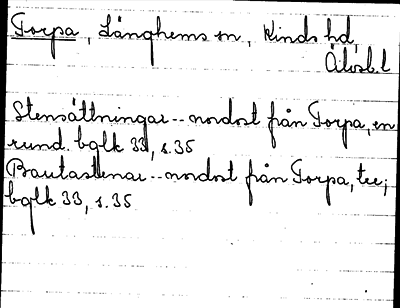 Torpa, Länghems sn, Kinds hd,
Älvsb.l
Stensättningar -- nordost från Torpa, en
rund. bglk 33, s.35
Bautastenar -- nordost från Torpa, tre;
bglk 33, s.35